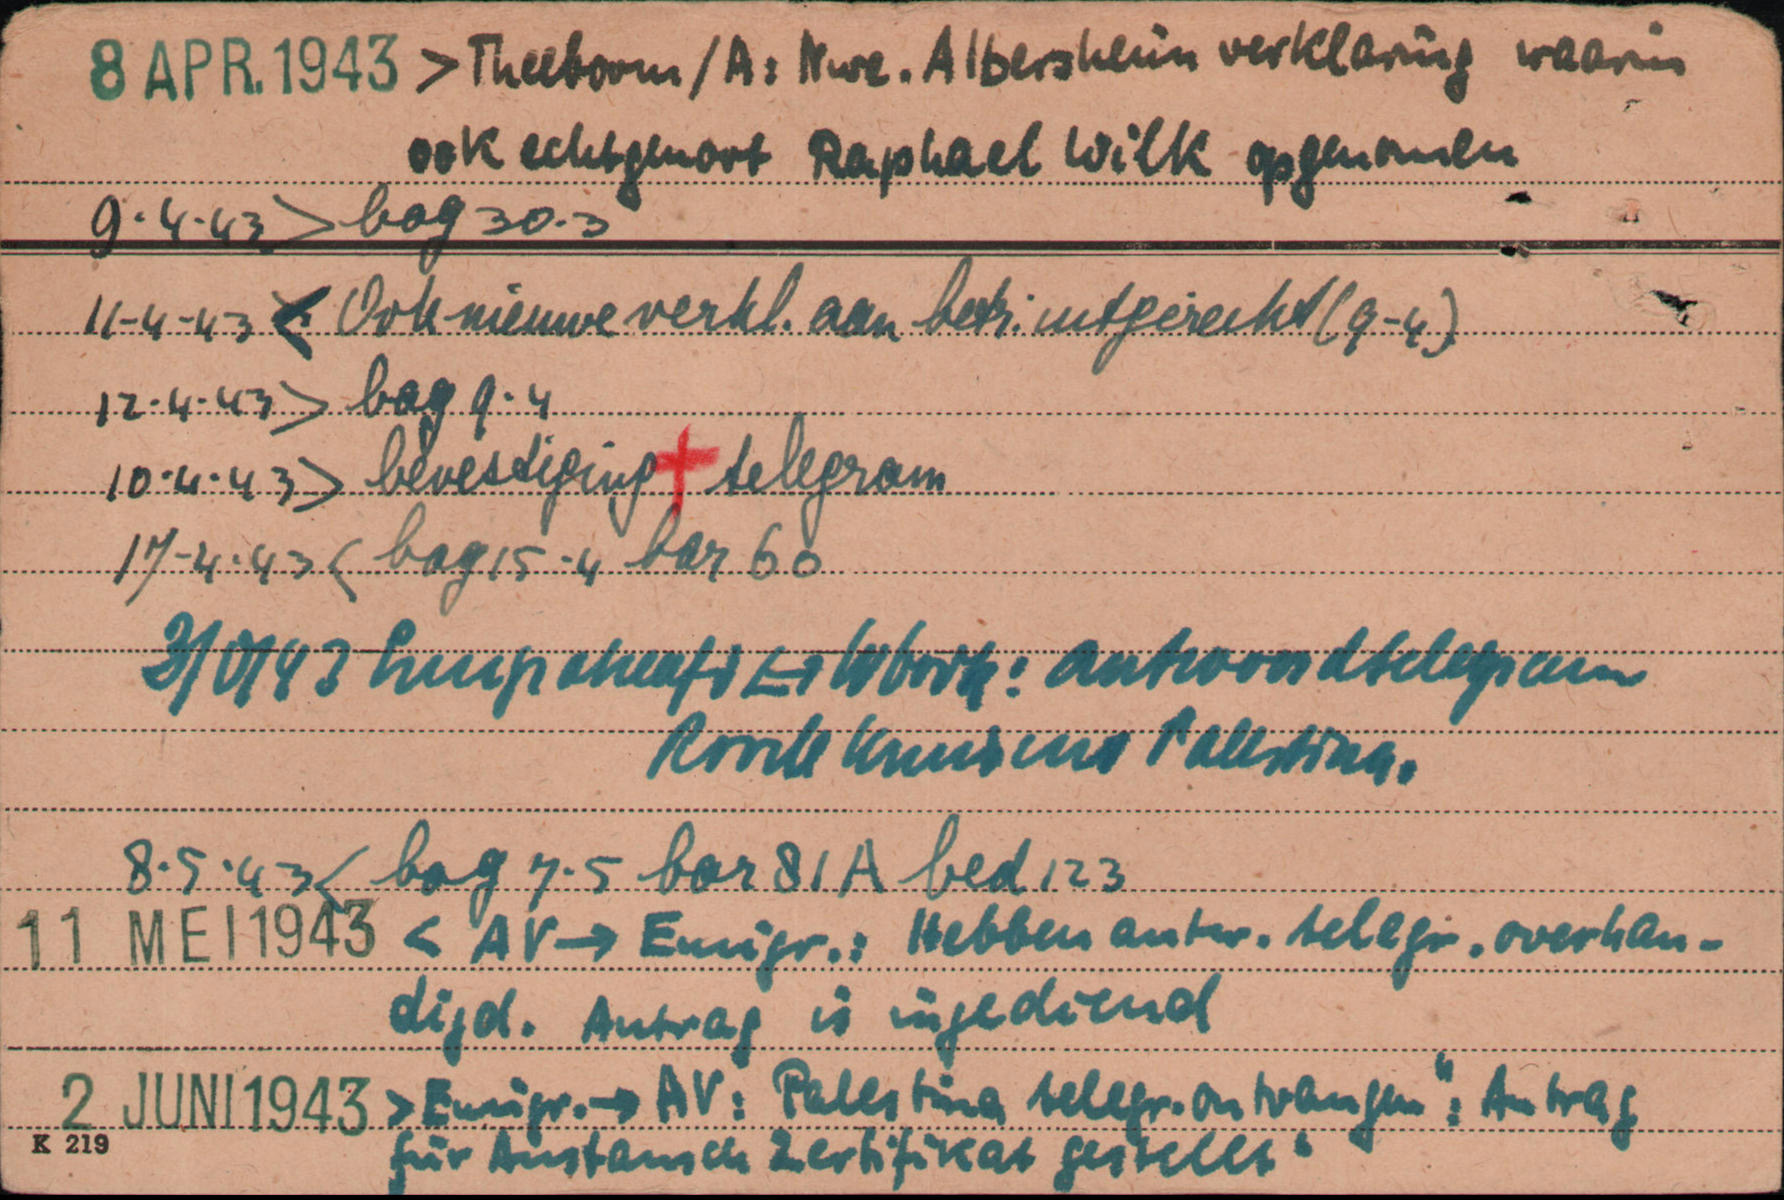 8 APR. 1943 > Theeboom/A: Nwe. Albersheim verklaring waarin
ook echtgenoot Raphael Wilk opgenomen
9·4·43 > bag 30·3
11-4-43 < Ook nieuwe verkl. aan betr. uitgereikt (9-4)
12·4·43 > bag 9·4
10·4·43 > bevestiging † telegram
17-4·43 < bag 15-4 bar 60
antwoordtelegram
Roode Kruis uit Palestina.
8·5·43 < bag 7·5 bar 81A bed 123
11 MEI 1943 < AV → Emigr.: Hebben antw. telegr. overhan-
digd. Antrag is ingediend
2 JUNI 1943 > Emigr. → AV: Palestina telegr. ontvangen": Antrag
für Austausch Zertifikat gestellt"
K 219